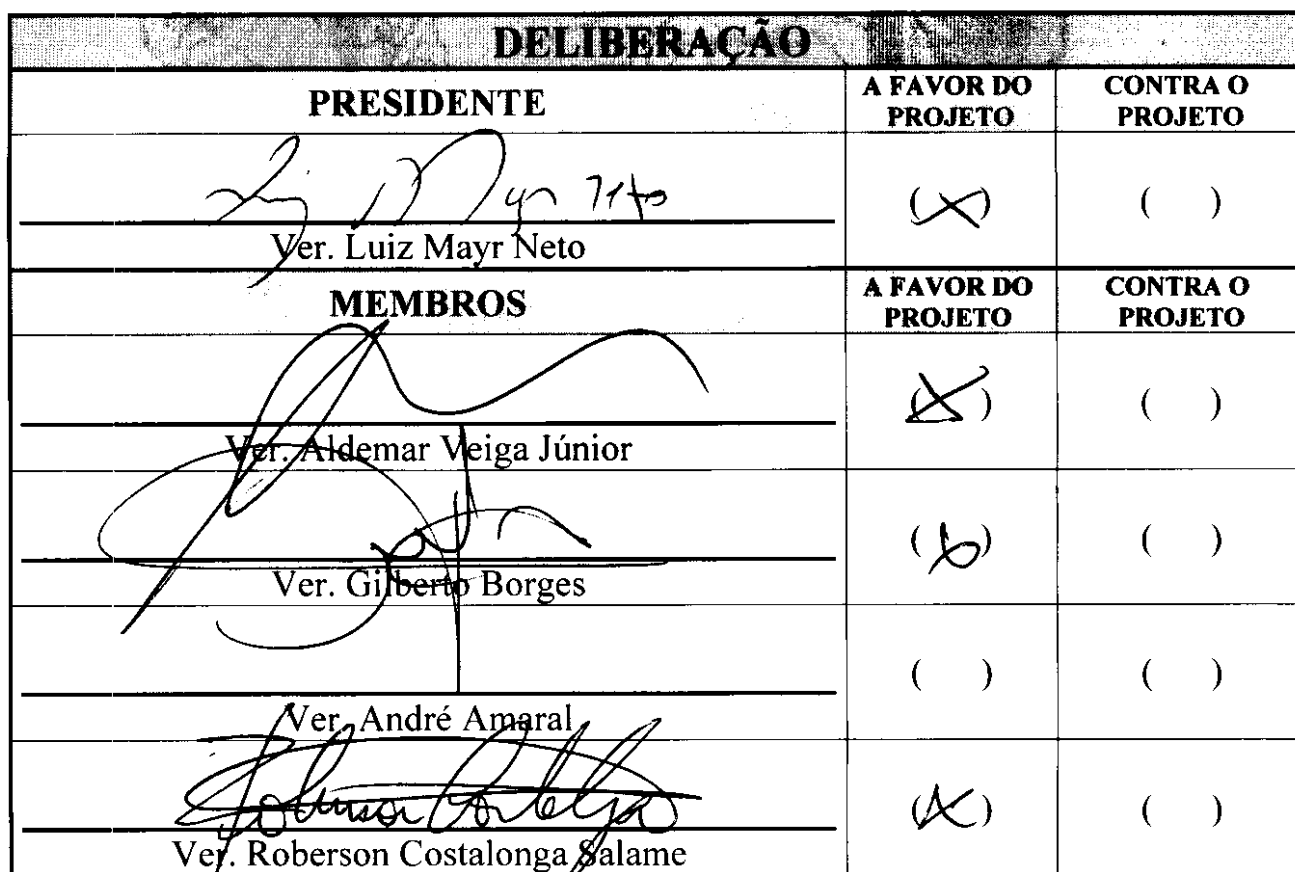 DELIBERAÇÃO
PRESIDENTE
A FAVOR DO PROJETO
CONTRA O PROJETO
Ver. Luiz Mayr Neto
( X )
( )
MEMBROS
A FAVOR DO PROJETO
CONTRA O PROJETO
Ver. Aldemar Veiga Júnior
( X )
( )
Ver. Gilberto Borges
( X )
( )
Ver. André Amaral
( )
( )
Ver. Roberson Costalonga Salame
( X )
( )